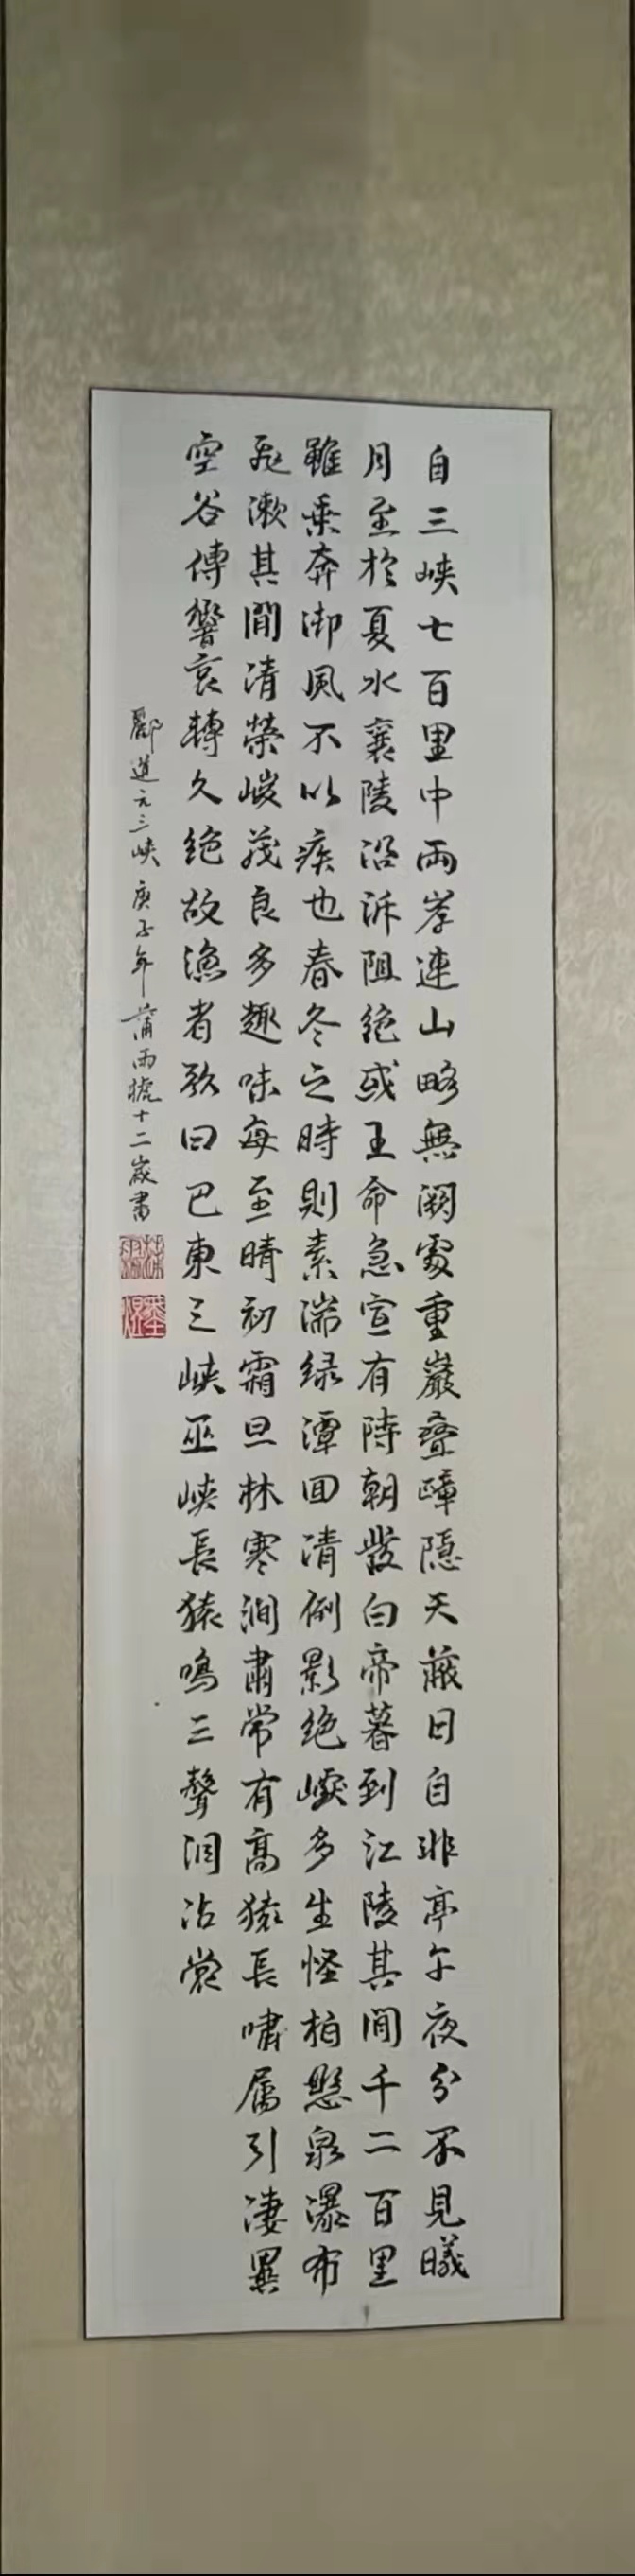 自三峽七百里中兩岸連山略無闕處重巖疊嶂隱天蔽日自非亭午夜分不見曦
月至於夏水襄陵沿泝阻絕或王命急宣有時朝發白帝暮到江陵其間千二百里
雖乘奔御風不以疾也春冬之時則素湍綠潭回清倒影絕巘多生怪柏懸泉瀑布
飛漱其間清榮峻茂良多趣味每至晴初霜旦林寒澗肅常有高猿長嘯屬引淒異
空谷傳響哀轉久絕故漁者歌曰巴東三峽巫峽長猿鳴三聲淚沾裳
酈道元三峽庚子年蒲雨十二歲書